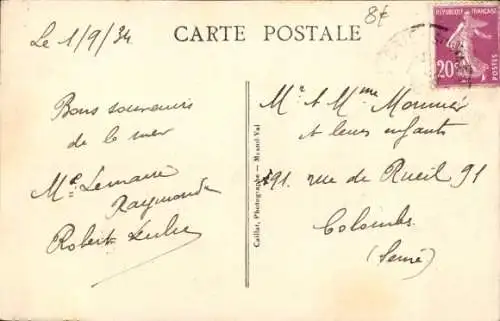 8€
CARTE POSTALE
Le 1/9/34
RÉPUBLIQUE FRANÇAISE
20c
POSTES
Bons souvenirs
de la mer
Me Lemaire
Raymonde
Robert
Mr & Mme Monnier
et leurs enfants
91. rue de Rueil 91
Colombes
(Seine)
Caillat, Photographe - Mesnil-Val